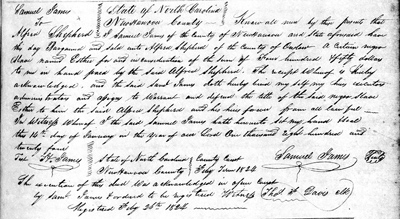 Samuel James State of North Carolina
To New Hanover County Know all men by these presents that
Alfred Shepherd I Samuel James of the County of New Hanover and State aforesaid have
this day Bargained and sold unto Alfred Shepherd of the County of Onslow A Certain negro
Slave named Esther for and in consideration of the sum of Four hundred & fifty dollars
to me in hand paid by the said Alfred Shepherd. The receipt Whereof is hereby
acknowledged, and the said Saml James doth hereby bind my self my heirs executors
administrators and assigns to Warrant and defend the title of the said negro Slave
Esther to him the said Alfred Shepherd and his heirs forever from all
In Witness Whereof I the said Samuel James hath hereunto set my hand & Seal
this 14th day of January in the year of our Lord One thousand eight hundred and
twenty four
James State of North Carolina County Court Samuel James Seal
New Hanover County Feby Term 1824
The execution of this deed was acknowledged in open Court
by Saml James & ordered to be registered Witness Thos F Davis Clk
Registered Feby 24th 1824